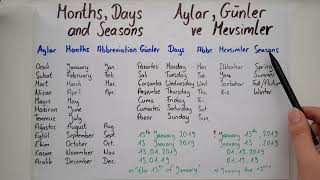 Months, Days Aylar, Günler
and Seasons ve Mevsimler
Aylar Months Abbreviation Günler Days Abbr. Mevsimler Seasons
Ocak January Jan. Pazartesi Monday Mon. İlkbahar Spring
Şubat February Feb. Salı Tuesday Tue. Yaz Summer
Mart March Mar. Çarşamba Wednesday Wed. Sonbahar Fall/Autumn
Nisan April Apr. Perşembe Thursday Thu. Kış Winter
Mayıs May Cuma Friday Fri.
Haziran June Cumartesi Saturday Sat.
Temmuz July Pazar Sunday Sun.
Ağustos August Aug.
Eylül September Sept. 13th January 2019 January 13th, 2019
Ekim October Oct. 13 January 2019 January 13, 2019
Kasım November Nov. 13.01.2019 01.13.2019
Aralık December Dec. 13.01.19 01.13.19
"the 13th of January" "January the 13th"